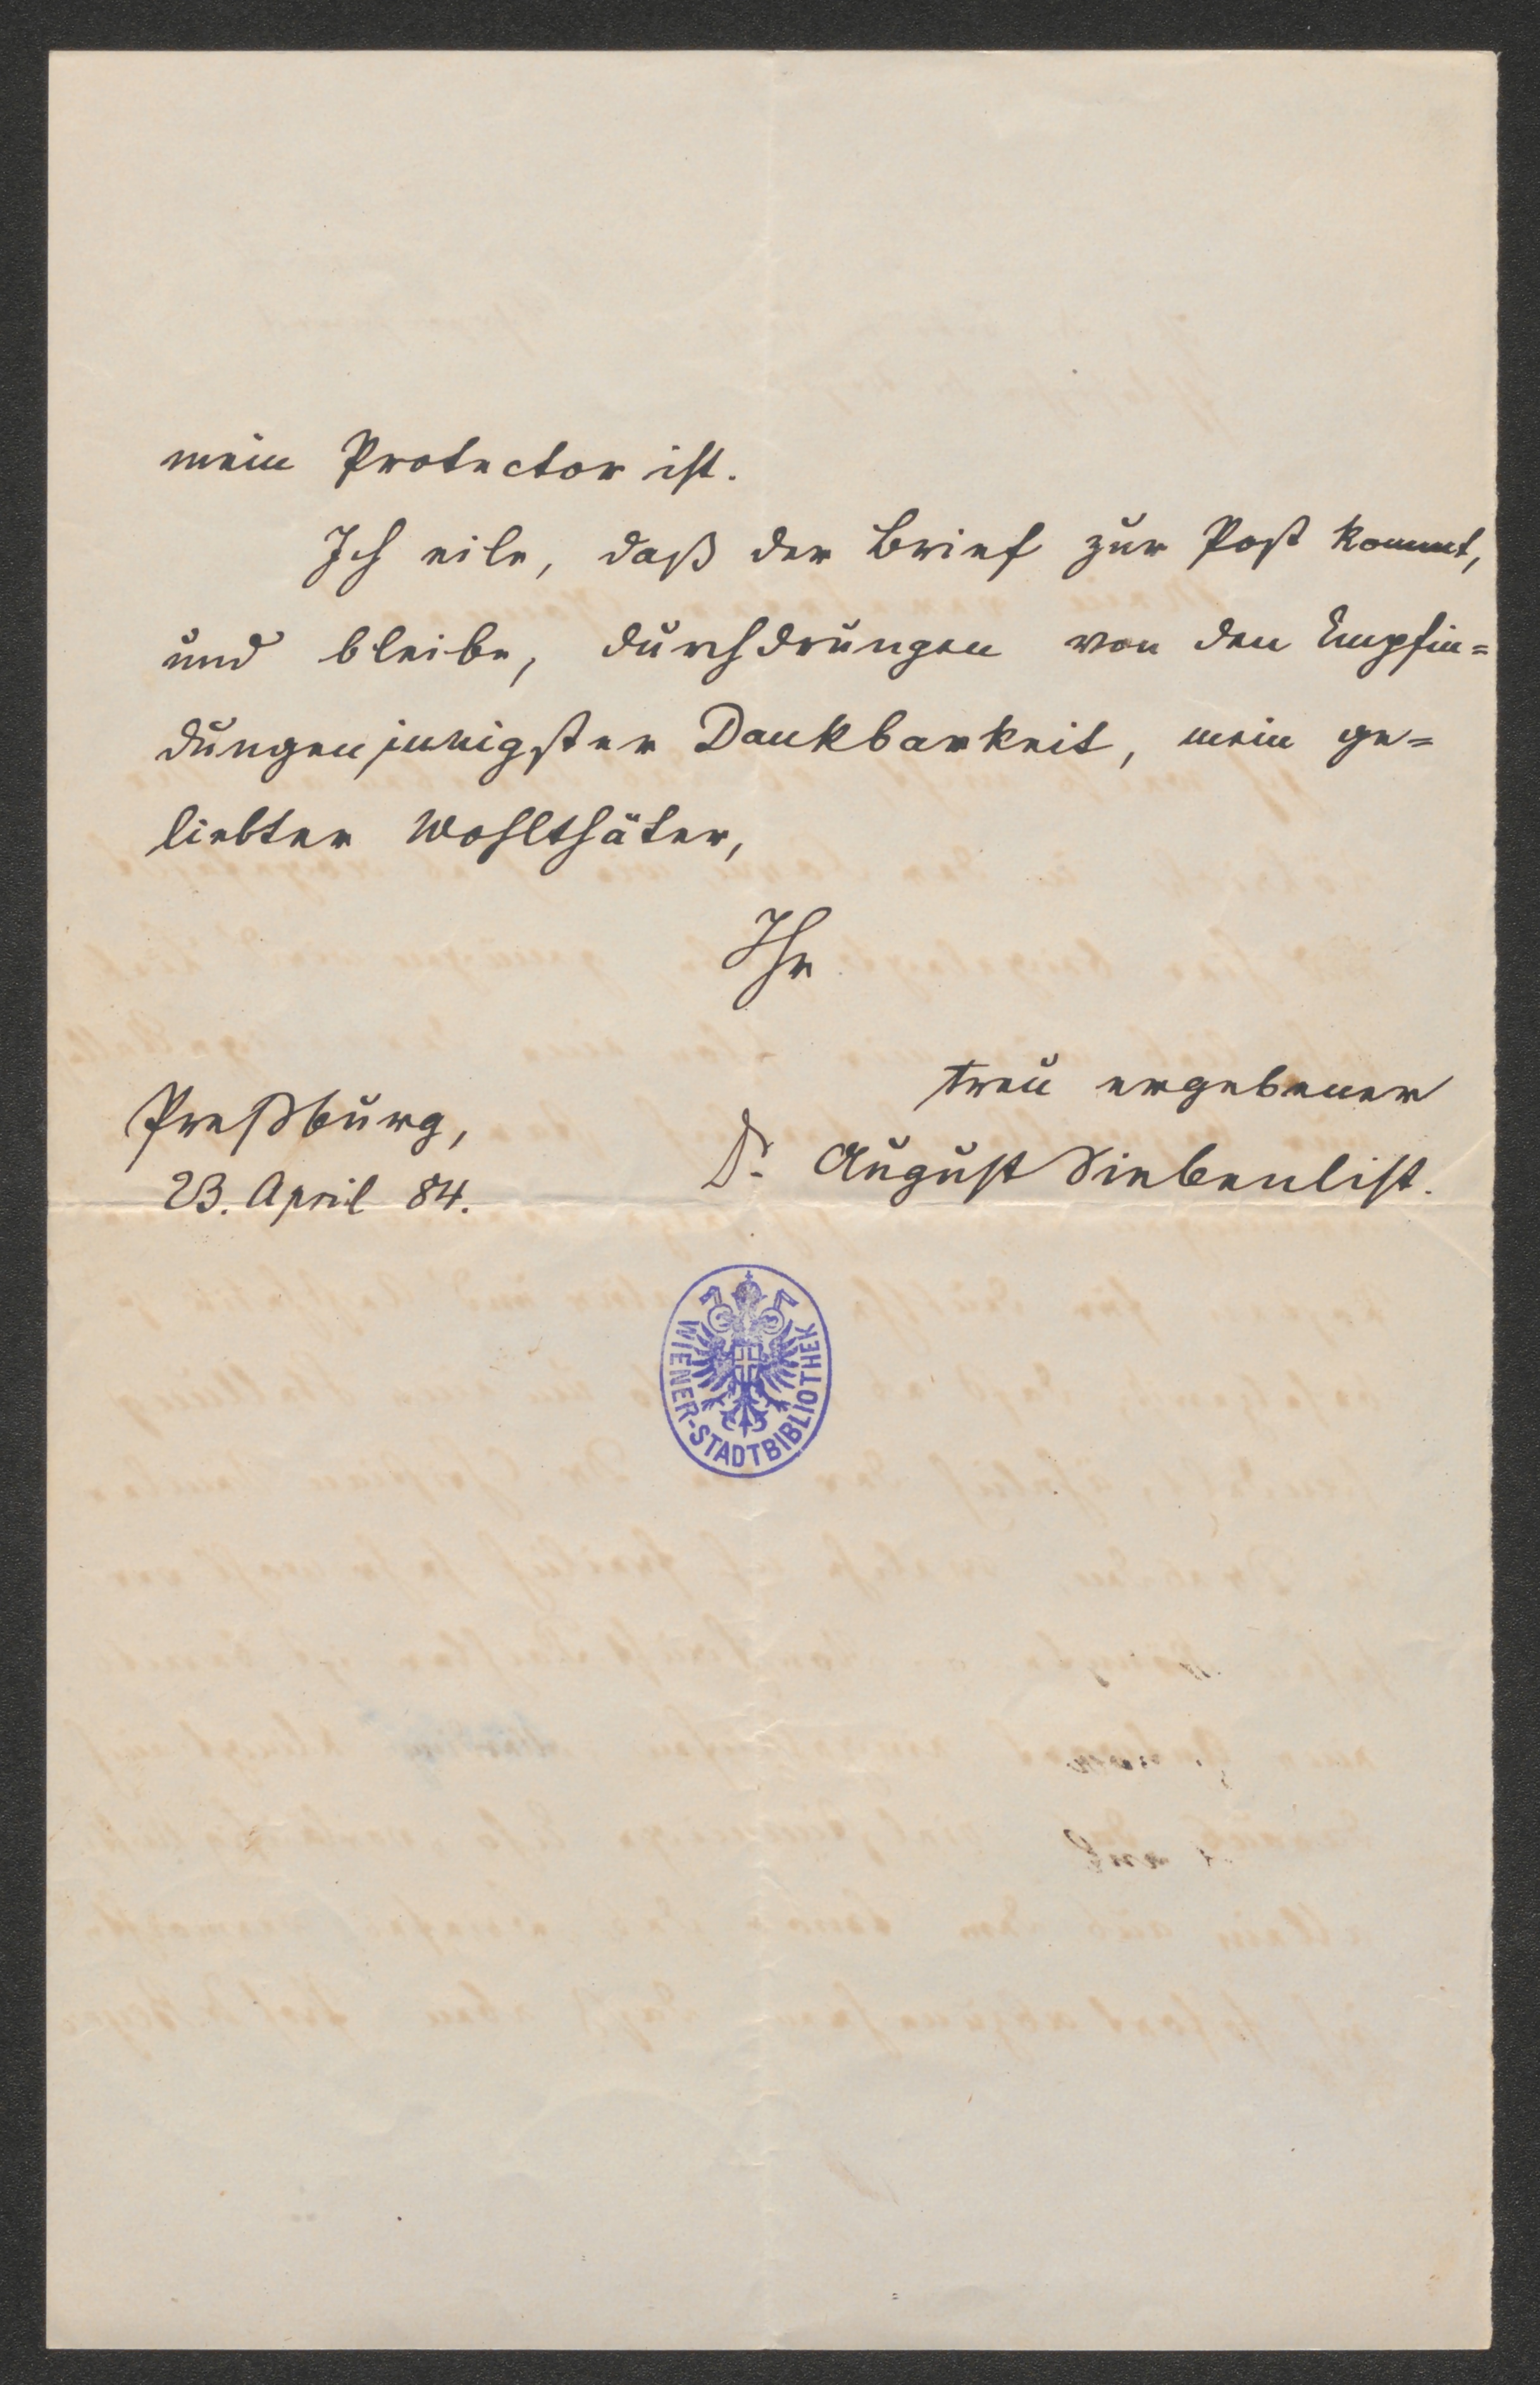 mein Protector ist.
Ich eile, daß der Brief zur Post kommt,
und bleibe, durchdrungen von den Empfin=
dungen innigster Dankbarkeit, mein ge=
liebter Wohlthäter,
Ihr
treu ergebener
Dr. August Siebenlist.
Preßburg,
23. April 84.
WIENER-STADTBIBLIOTHEK